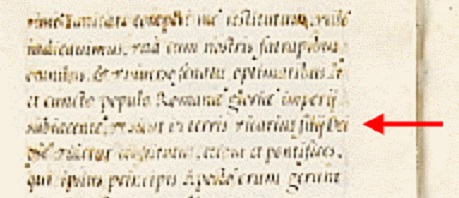 sanitate comperi me restitutum, utile
iudicauimus, una cum nostris satrapibus
omnibus, & uniuerso senatu optimatibus,
et cuncto populo Romane glorie imperij
subiacente, ut sicut in terris uicarius filij Dei
uidetur constitutus, etiam et pontifices,
qui ipsius principis Apostolorum gerunt